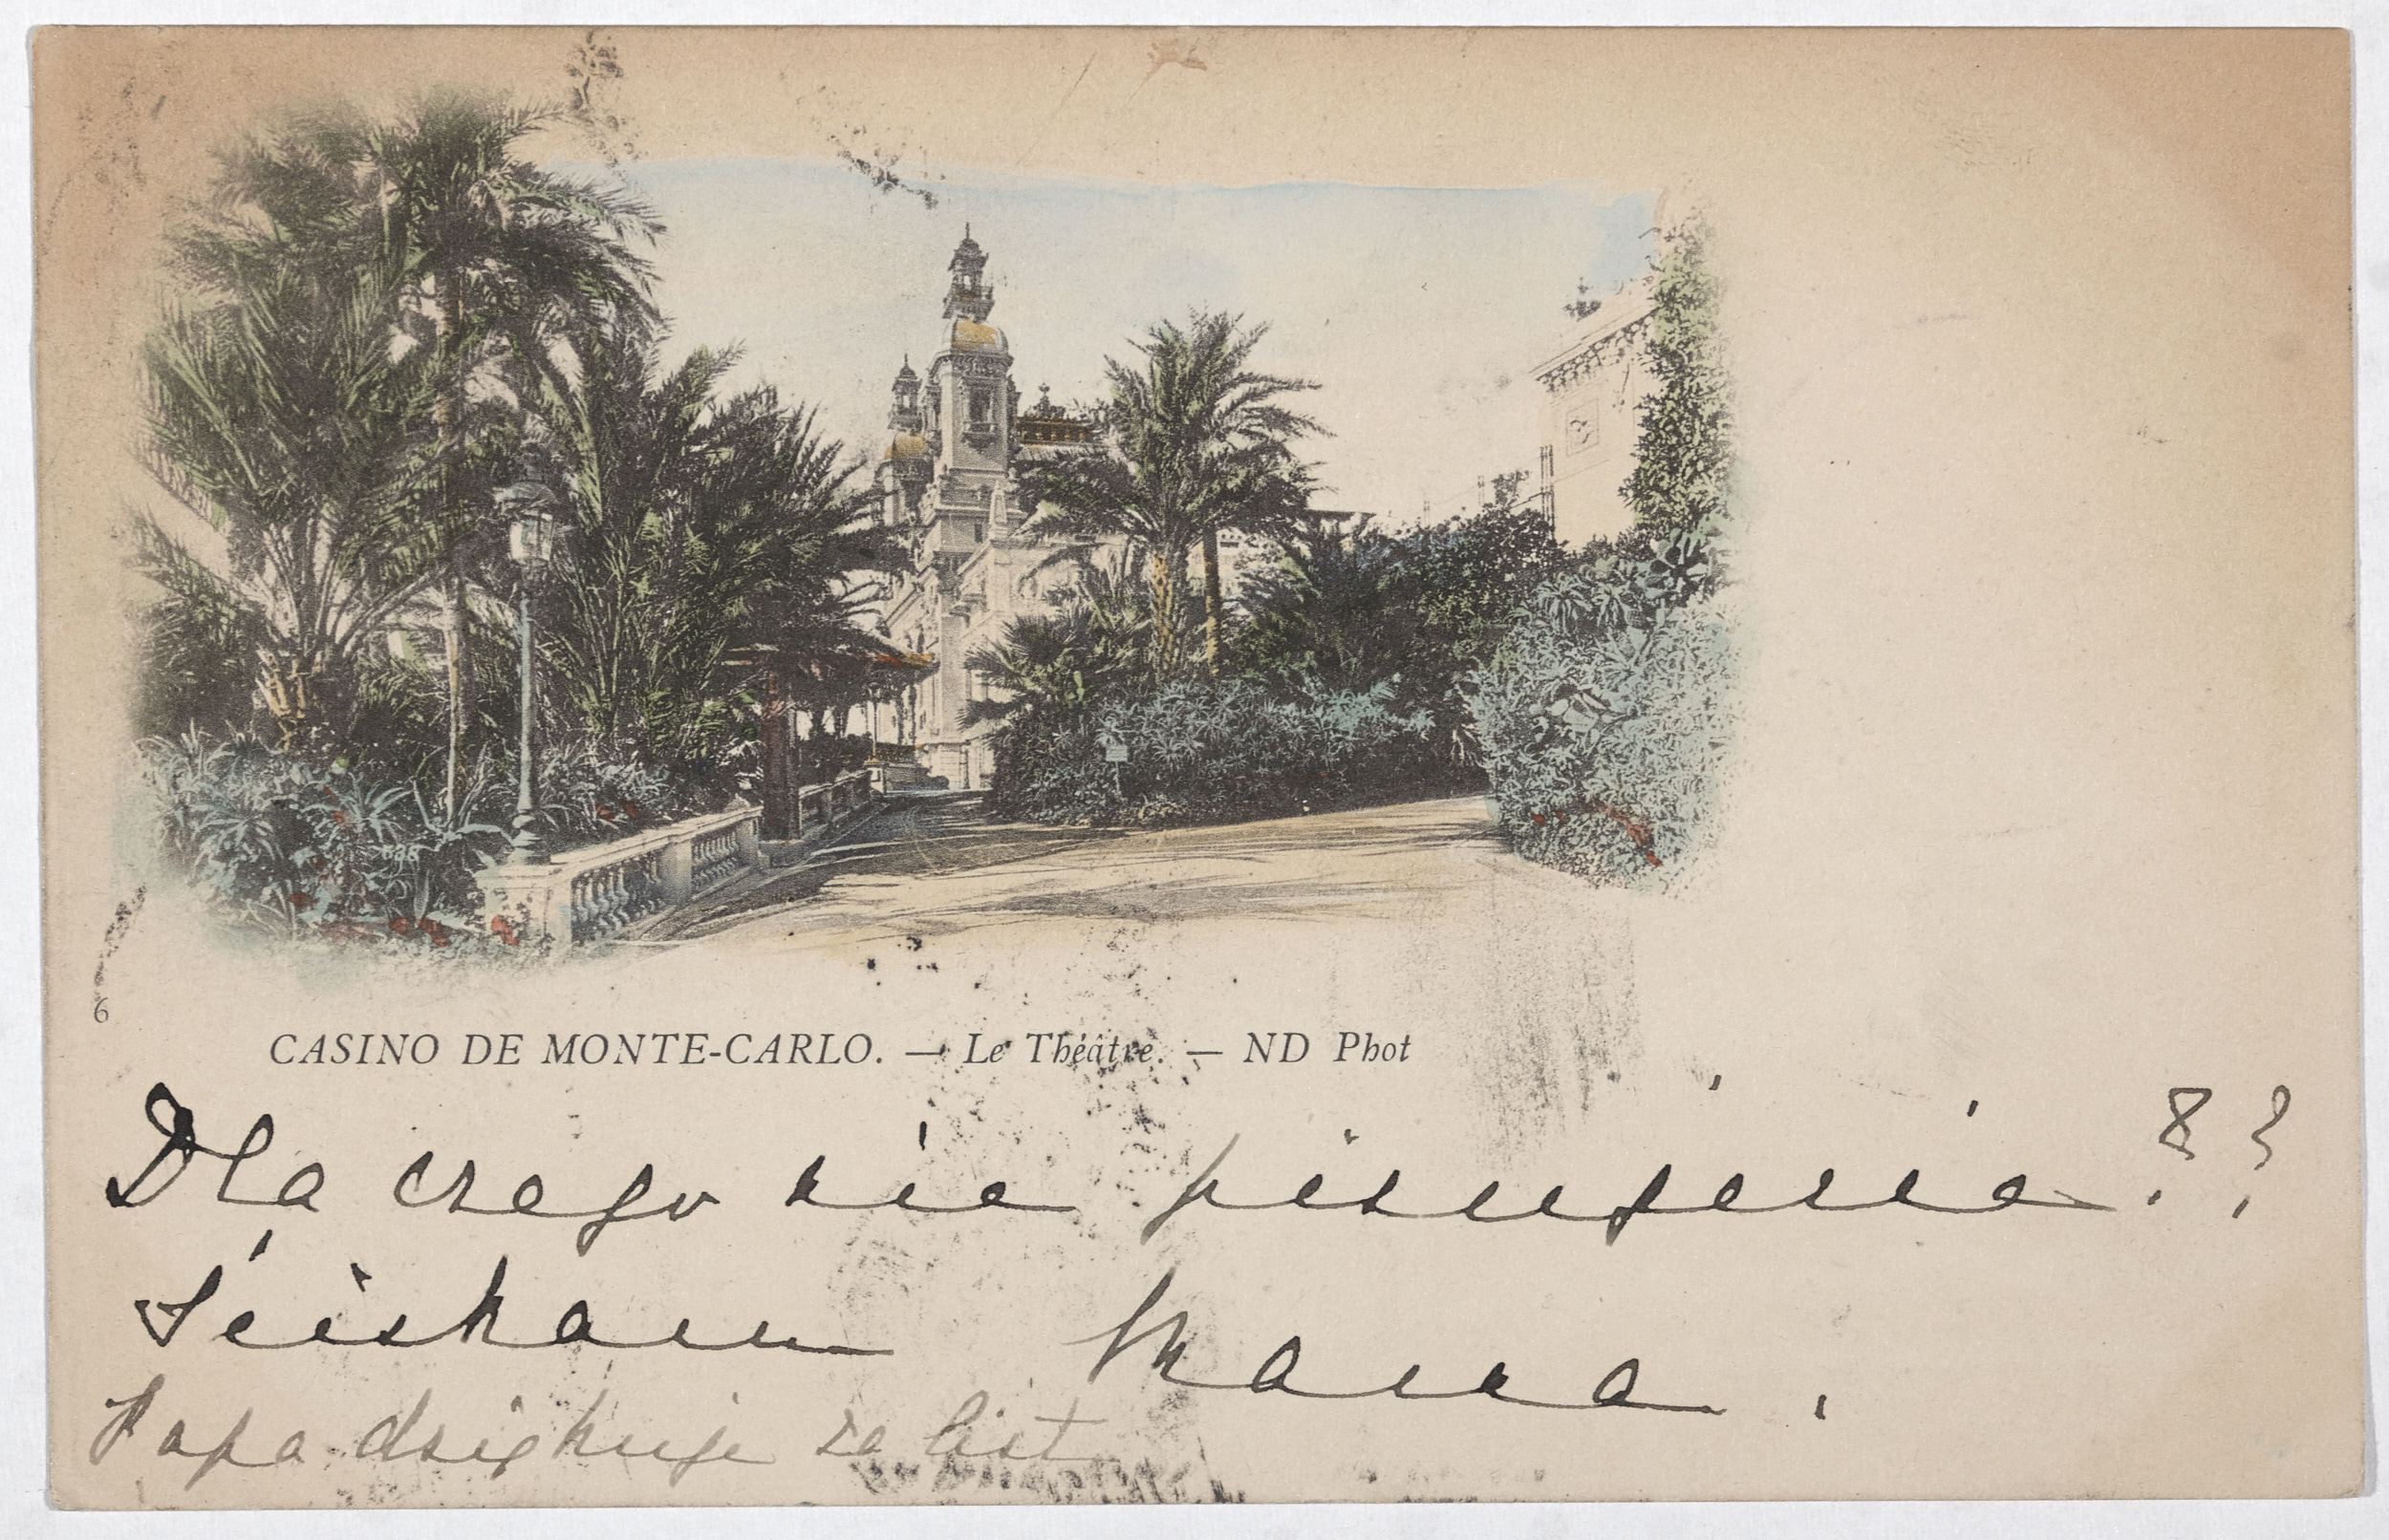 6
CASINO DE MONTE-CARLO. — Le Théâtre. — ND Phot
Dla czego nie pisujecie??
Ściskam
Papa dziękuje za list